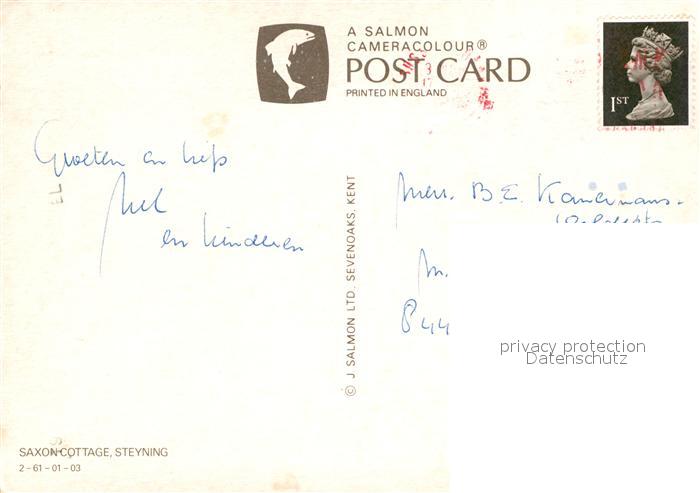 A SALMON
CAMERACOLOUR®
POST CARD
PRINTED IN ENGLAND
1ST
Groeten en liefs
en kinderen
© J SALMON LTD. SEVENOAKS, KENT
Mevr. B.E.
M.
844
privacy protection
Datenschutz
SAXON COTTAGE, STEYNING
2-61-01-03